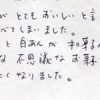 が とても おいしい と 言
べて しまいました。
と 白あんが 和菓
な 不思議な お菓
くなりました。